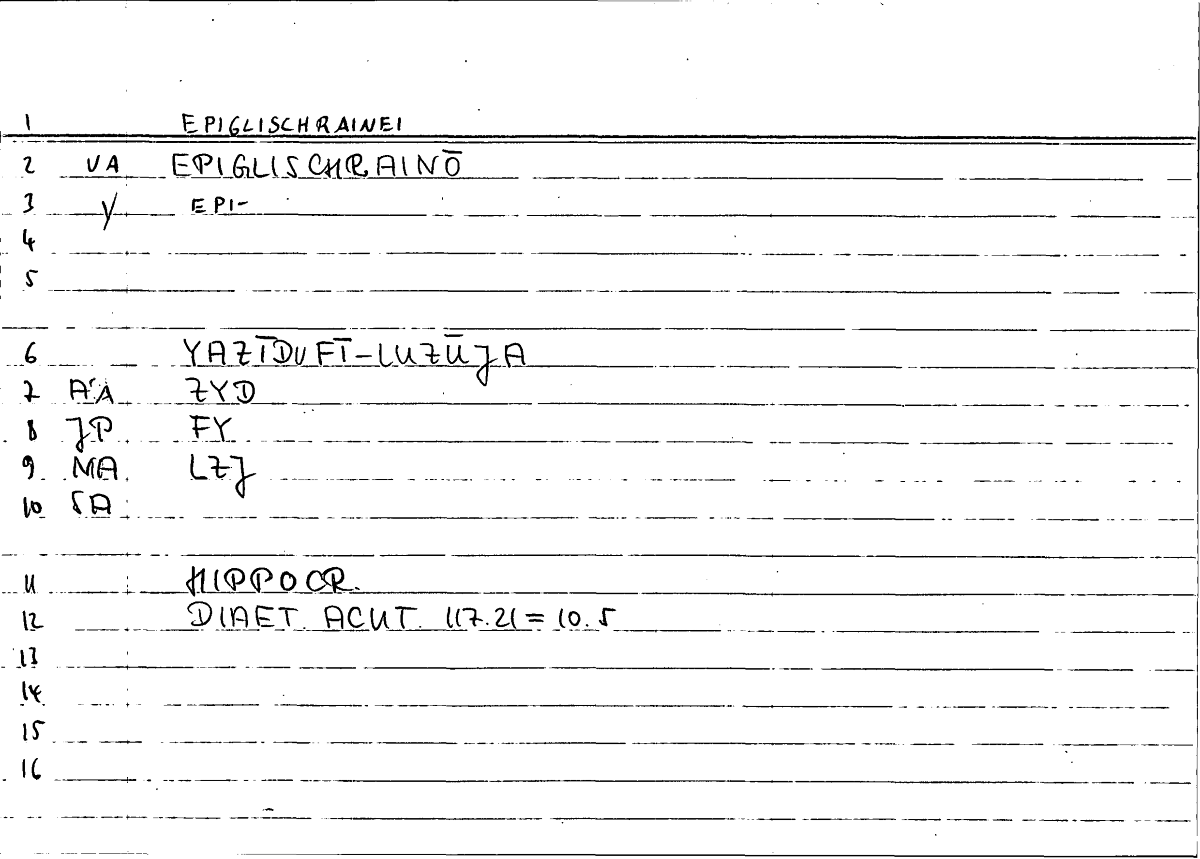 1 EPIGLISCHRAINEI
2 VA EPIGLISCHRAINŌ
3 y EPI-
4
5
6 YAZĪDUFĪ-LUZŪJA
7 A'A ZYD
8 JP FY
9 MA LZJ
10 SA
11 HIPPOCR.
12 DIAET. ACUT. 117.21 = 10.5
13
14
15
16